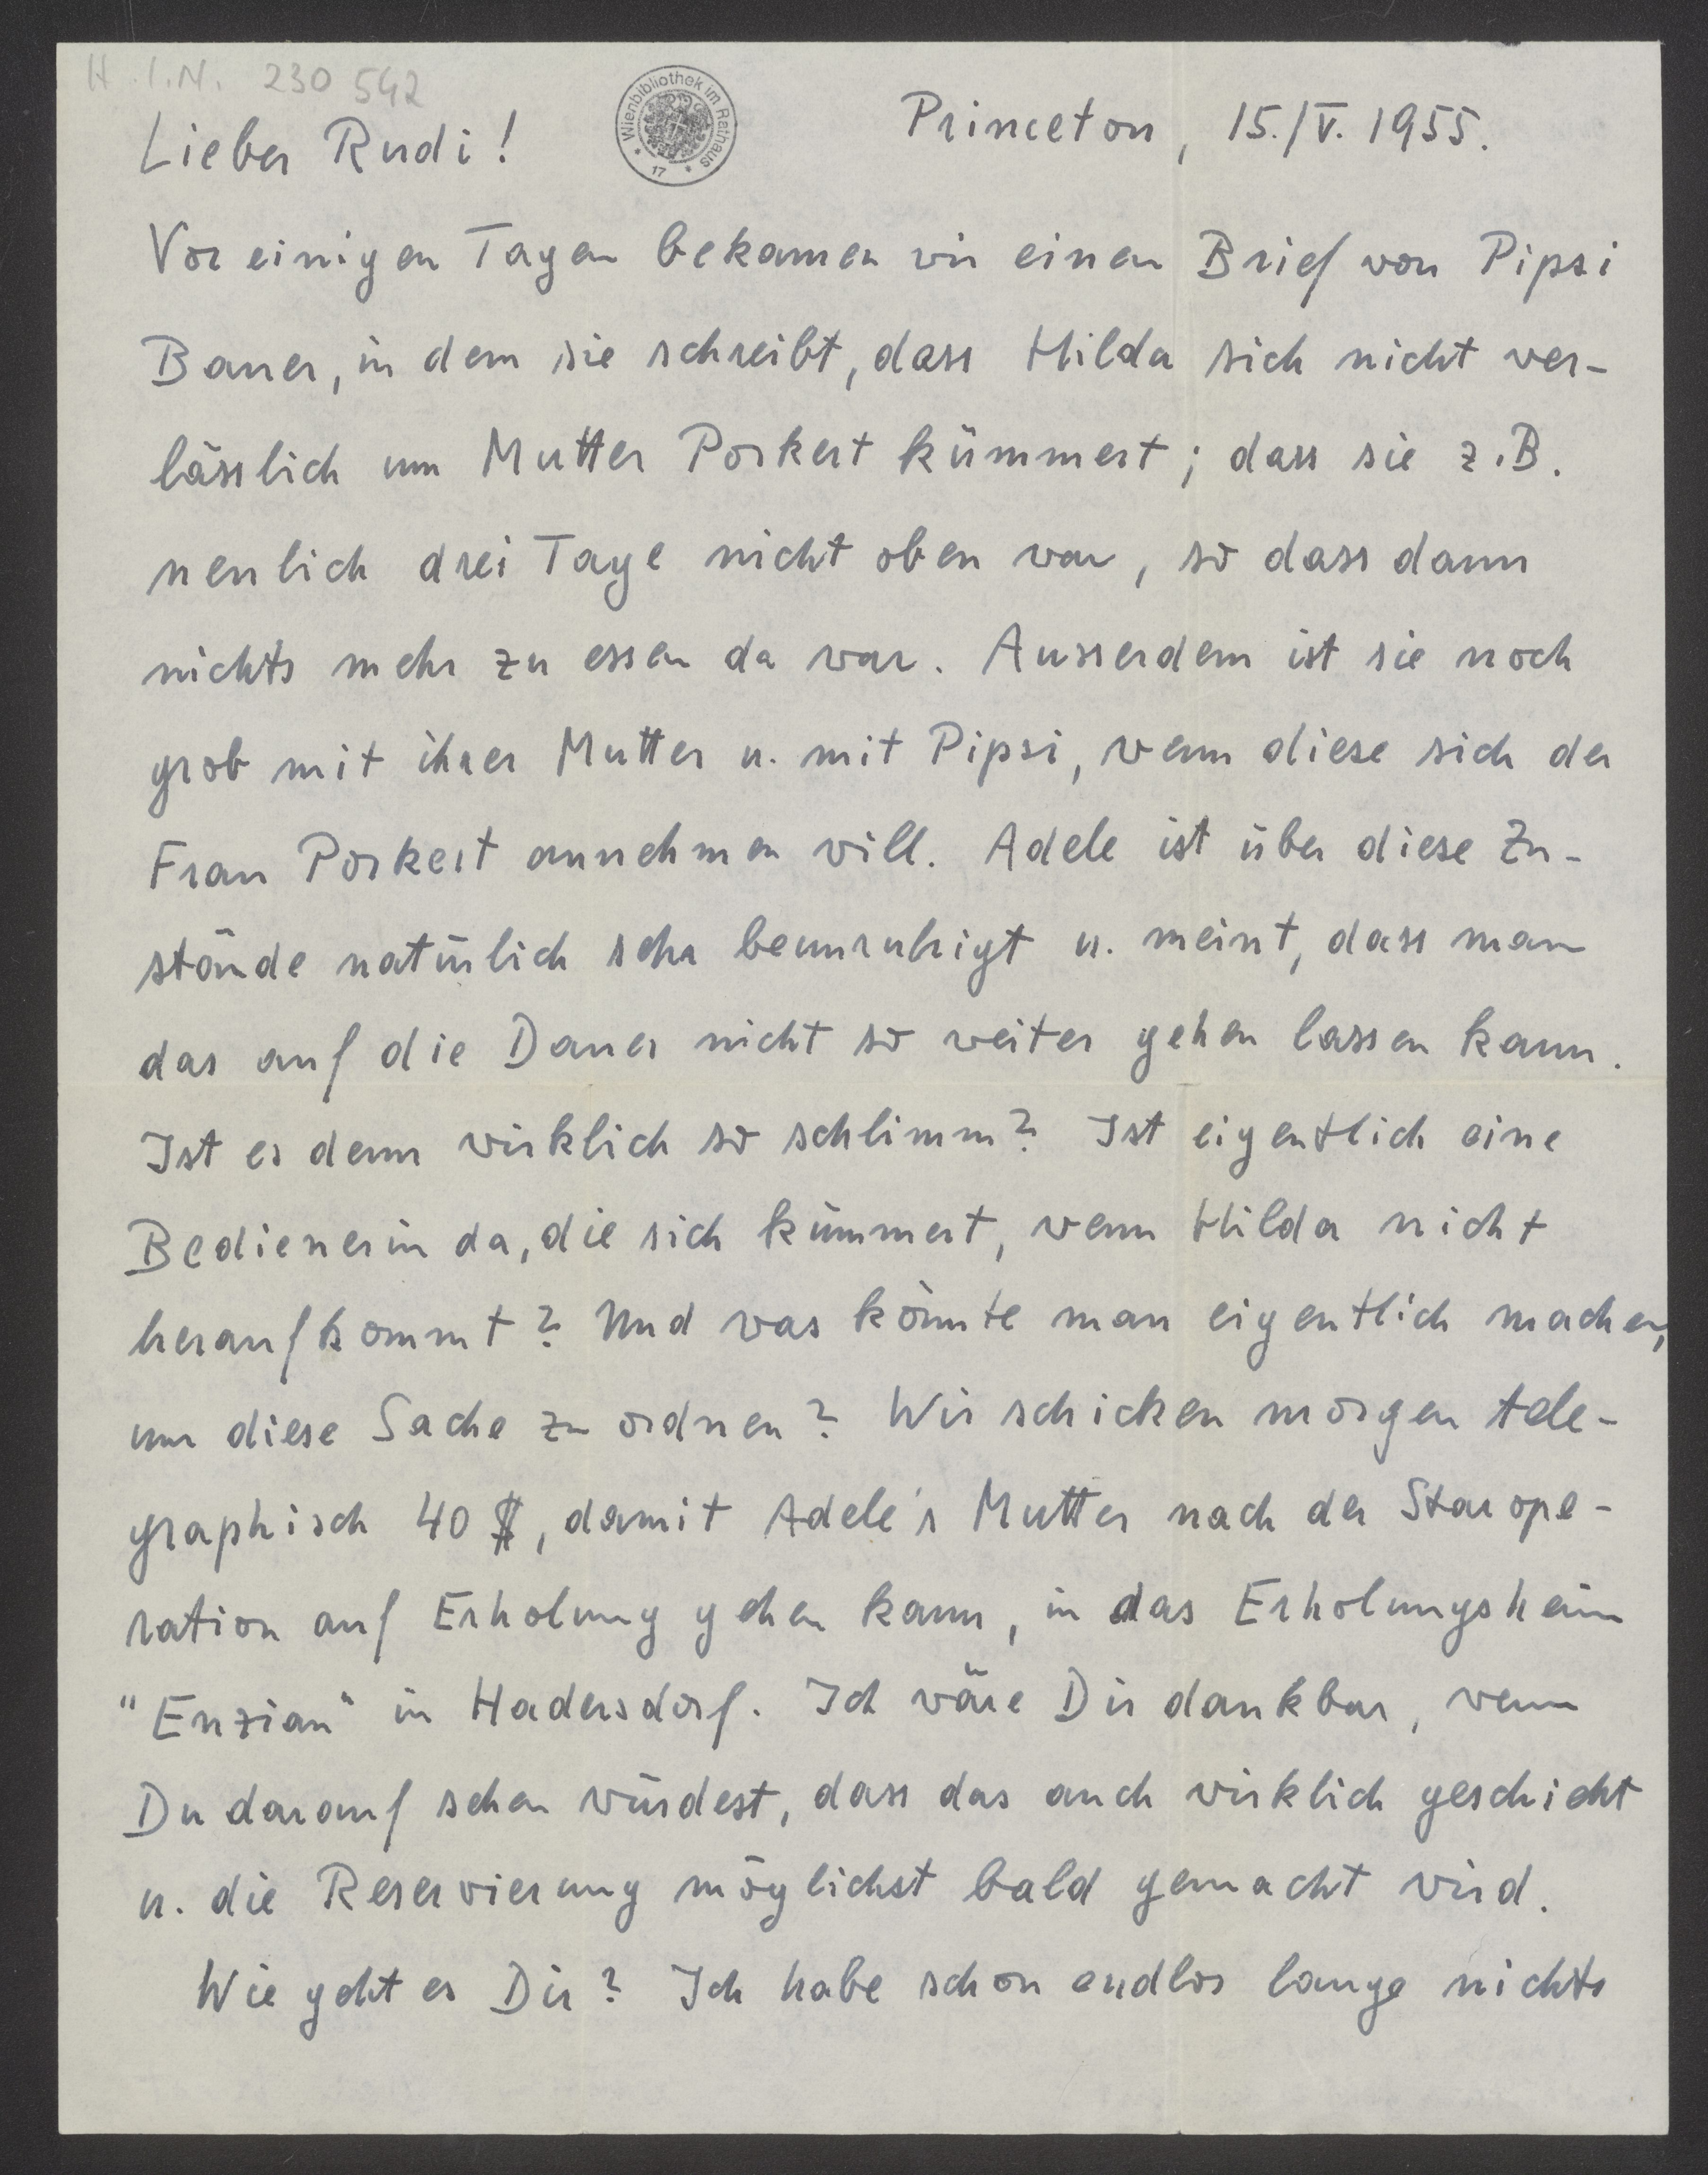 H.I.N. 230 542
Wienbibliothek im Rathaus
* 17 *
Princeton, 15./V. 1955.
Lieber Rudi!
Vor einigen Tagen bekamen wir einen Brief von Pipsi
Bauer, in dem sie schreibt, dass Hilda sich nicht ver-
lässlich um Mutter Porkert kümmert; dass sie z.B.
neulich drei Tage nicht oben war, so dass dann
nichts mehr zu essen da war. Ausserdem ist sie noch
grob mit ihrer Mutter u. mit Pipsi, wenn diese sich der
Frau Porkert annehmen will. Adele ist über diese Zu-
stände natürlich sehr beunruhigt u. meint, dass man
das auf die Dauer nicht so weiter gehen lassen kann.
Ist es denn wirklich so schlimm? Ist eigentlich eine
Bedienerin da, die sich kümmert, wenn Hilda nicht
heraufkommt? Und was könnte man eigentlich machen,
um diese Sache zu ordnen? Wir schicken morgen tele-
graphisch 40 $, damit Adele's Mutter nach der Starope-
ration auf Erholung gehen kann, in das Erholungsheim
"Enzian" in Hadersdorf. Ich wäre Dir dankbar, wenn
Du darauf sehen würdest, dass das auch wirklich geschieht
u. die Reservierung möglichst bald gemacht wird.
Wie geht es Dir? Ich habe schon endlos lange nichts